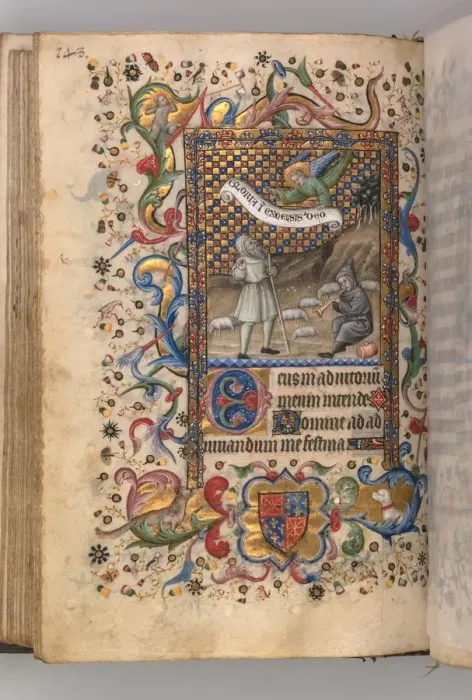 243.
GLORIA Ī EXCELSIS DEO
Deus in adiutoriū
meum intende
Domine ad ad
iuuandum me festina